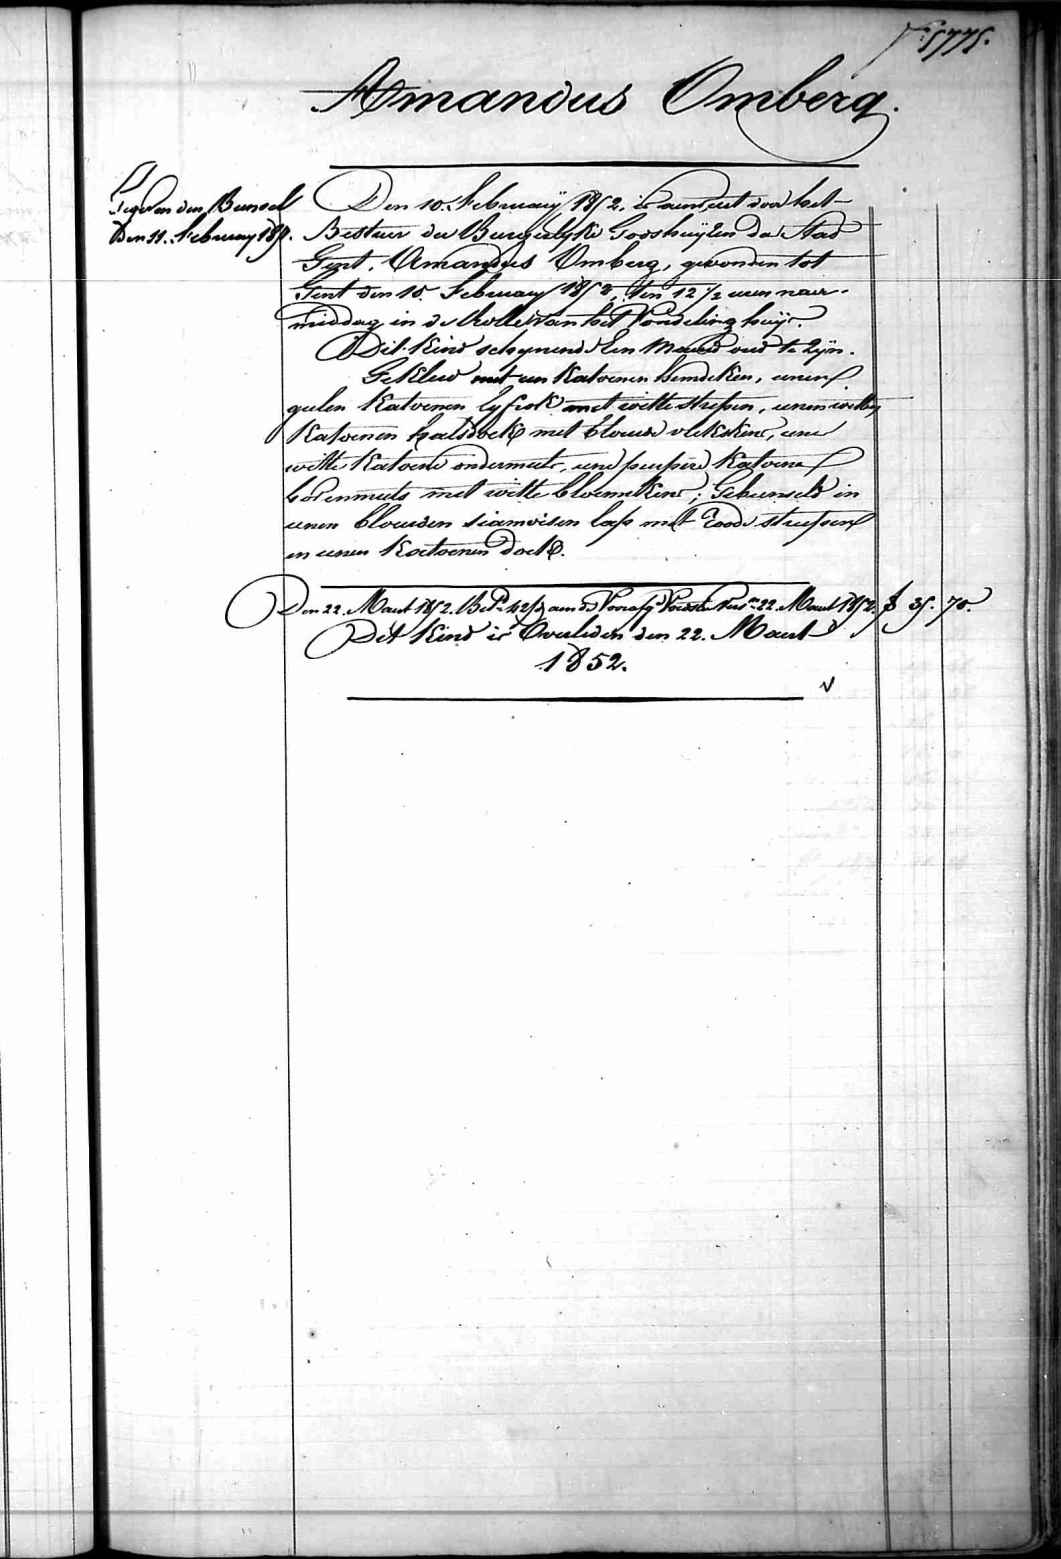 5775.
Amandus Omberg.
Tegen den Bunsel
Den 11. February 1852.
Den 10. February 1852, is aenveert door het
Bestuer der Burgerlyke Godshuyzen der Stad
Gent, Amandus Omberg, gevonden tot
Gent den 10 February 1852, ten 12 1/2 uren naer-
middag in de Rolle van het Vondelinghuys.
Dit Kind schynende Een Maend oud te zyn.
Gekleed met een Katoenen hemdeken, eenen
geelen Katoenen lyfrok met witte strepen, eenen witten
Katoenen halsdoek met blouwe vlekskens, eene
witte Katoene ondermuts, eene peirpere Katoene
bovenmuts met witte bloemekens; Gebunseld in
eenen blouwen siamoisen lap met Roode streepen
en eenen Katoenen doek.
Den 22. Maert 1852. aan de 22. Maert 1852. 35. 70.
Dit Kind is Overleden den 22. Maert
1852.